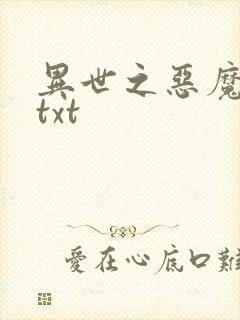 異世之惡魔
txt
愛在心底口難